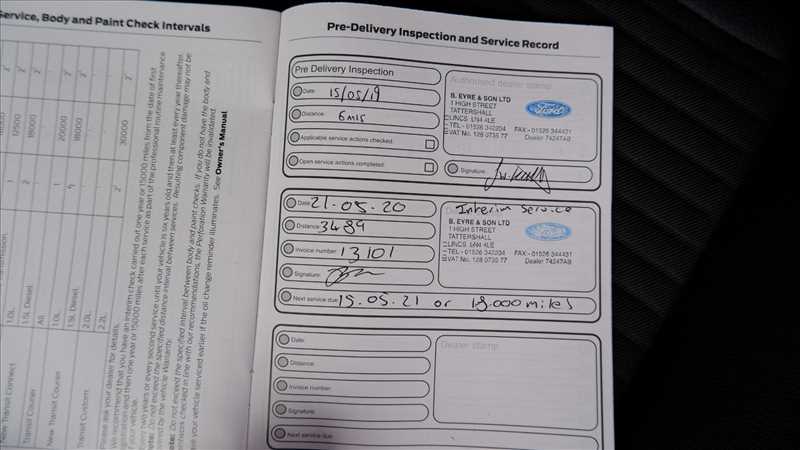 Service, Body and Paint Check Intervals
Pre-Delivery Inspection and Service Record
Pre Delivery Inspection
Date: 15/05/19
Distance: 6mls
Applicable service actions checked:
Open service actions completed:
Authorised dealer stamp
B. EYRE & SON LTD
1 HIGH STREET
TATTERSHALL
LINCS LN4 4LE
TEL - 01526 342204 FAX - 01526 344431
VAT No. 128 0735 77 Dealer 7424TAB
Ford
Signature:
Date: 21.05.20
Distance: 3489
Invoice number: 13101
Signature:
Next service due: 15.05.21 or 18.000 miles
Interim Service
B. EYRE & SON LTD
1 HIGH STREET
TATTERSHALL
LINCS LN4 4LE
TEL - 01526 342204 FAX - 01526 344431
VAT No. 128 0735 77 Dealer 7424TAB
Date:
Distance:
Invoice number:
Signature:
Next service due
Dealer stamp
12500
18000
20000
18000
30000
1.0L
1.5L Diesel
All
1.0L
1.5L Diesel
2.0L
2.2L
New Transit Connect
Transit Courier
New Transit Courier
Transit Custom
Please ask your dealer for details.
We recommend that you have an interim check carried out one year or 15000 miles from the date of first
registration and then one year or 15000 miles after each service as part of the professional routine maintenance
of your vehicle.
every two years or every second service until your vehicle is six years old and then at least every year thereafter.
Note: Do not exceed the specified distance interval between services. Resulting component damage may not be
covered by the vehicle Warranty.
Note: Do not exceed the specified interval between body and paint checks. If you do not have the body and
paintwork checked in line with our recommendations, the Perforation Warranty will be invalidated.
your vehicle serviced earlier if the oil change reminder illuminates. See Owner's Manual